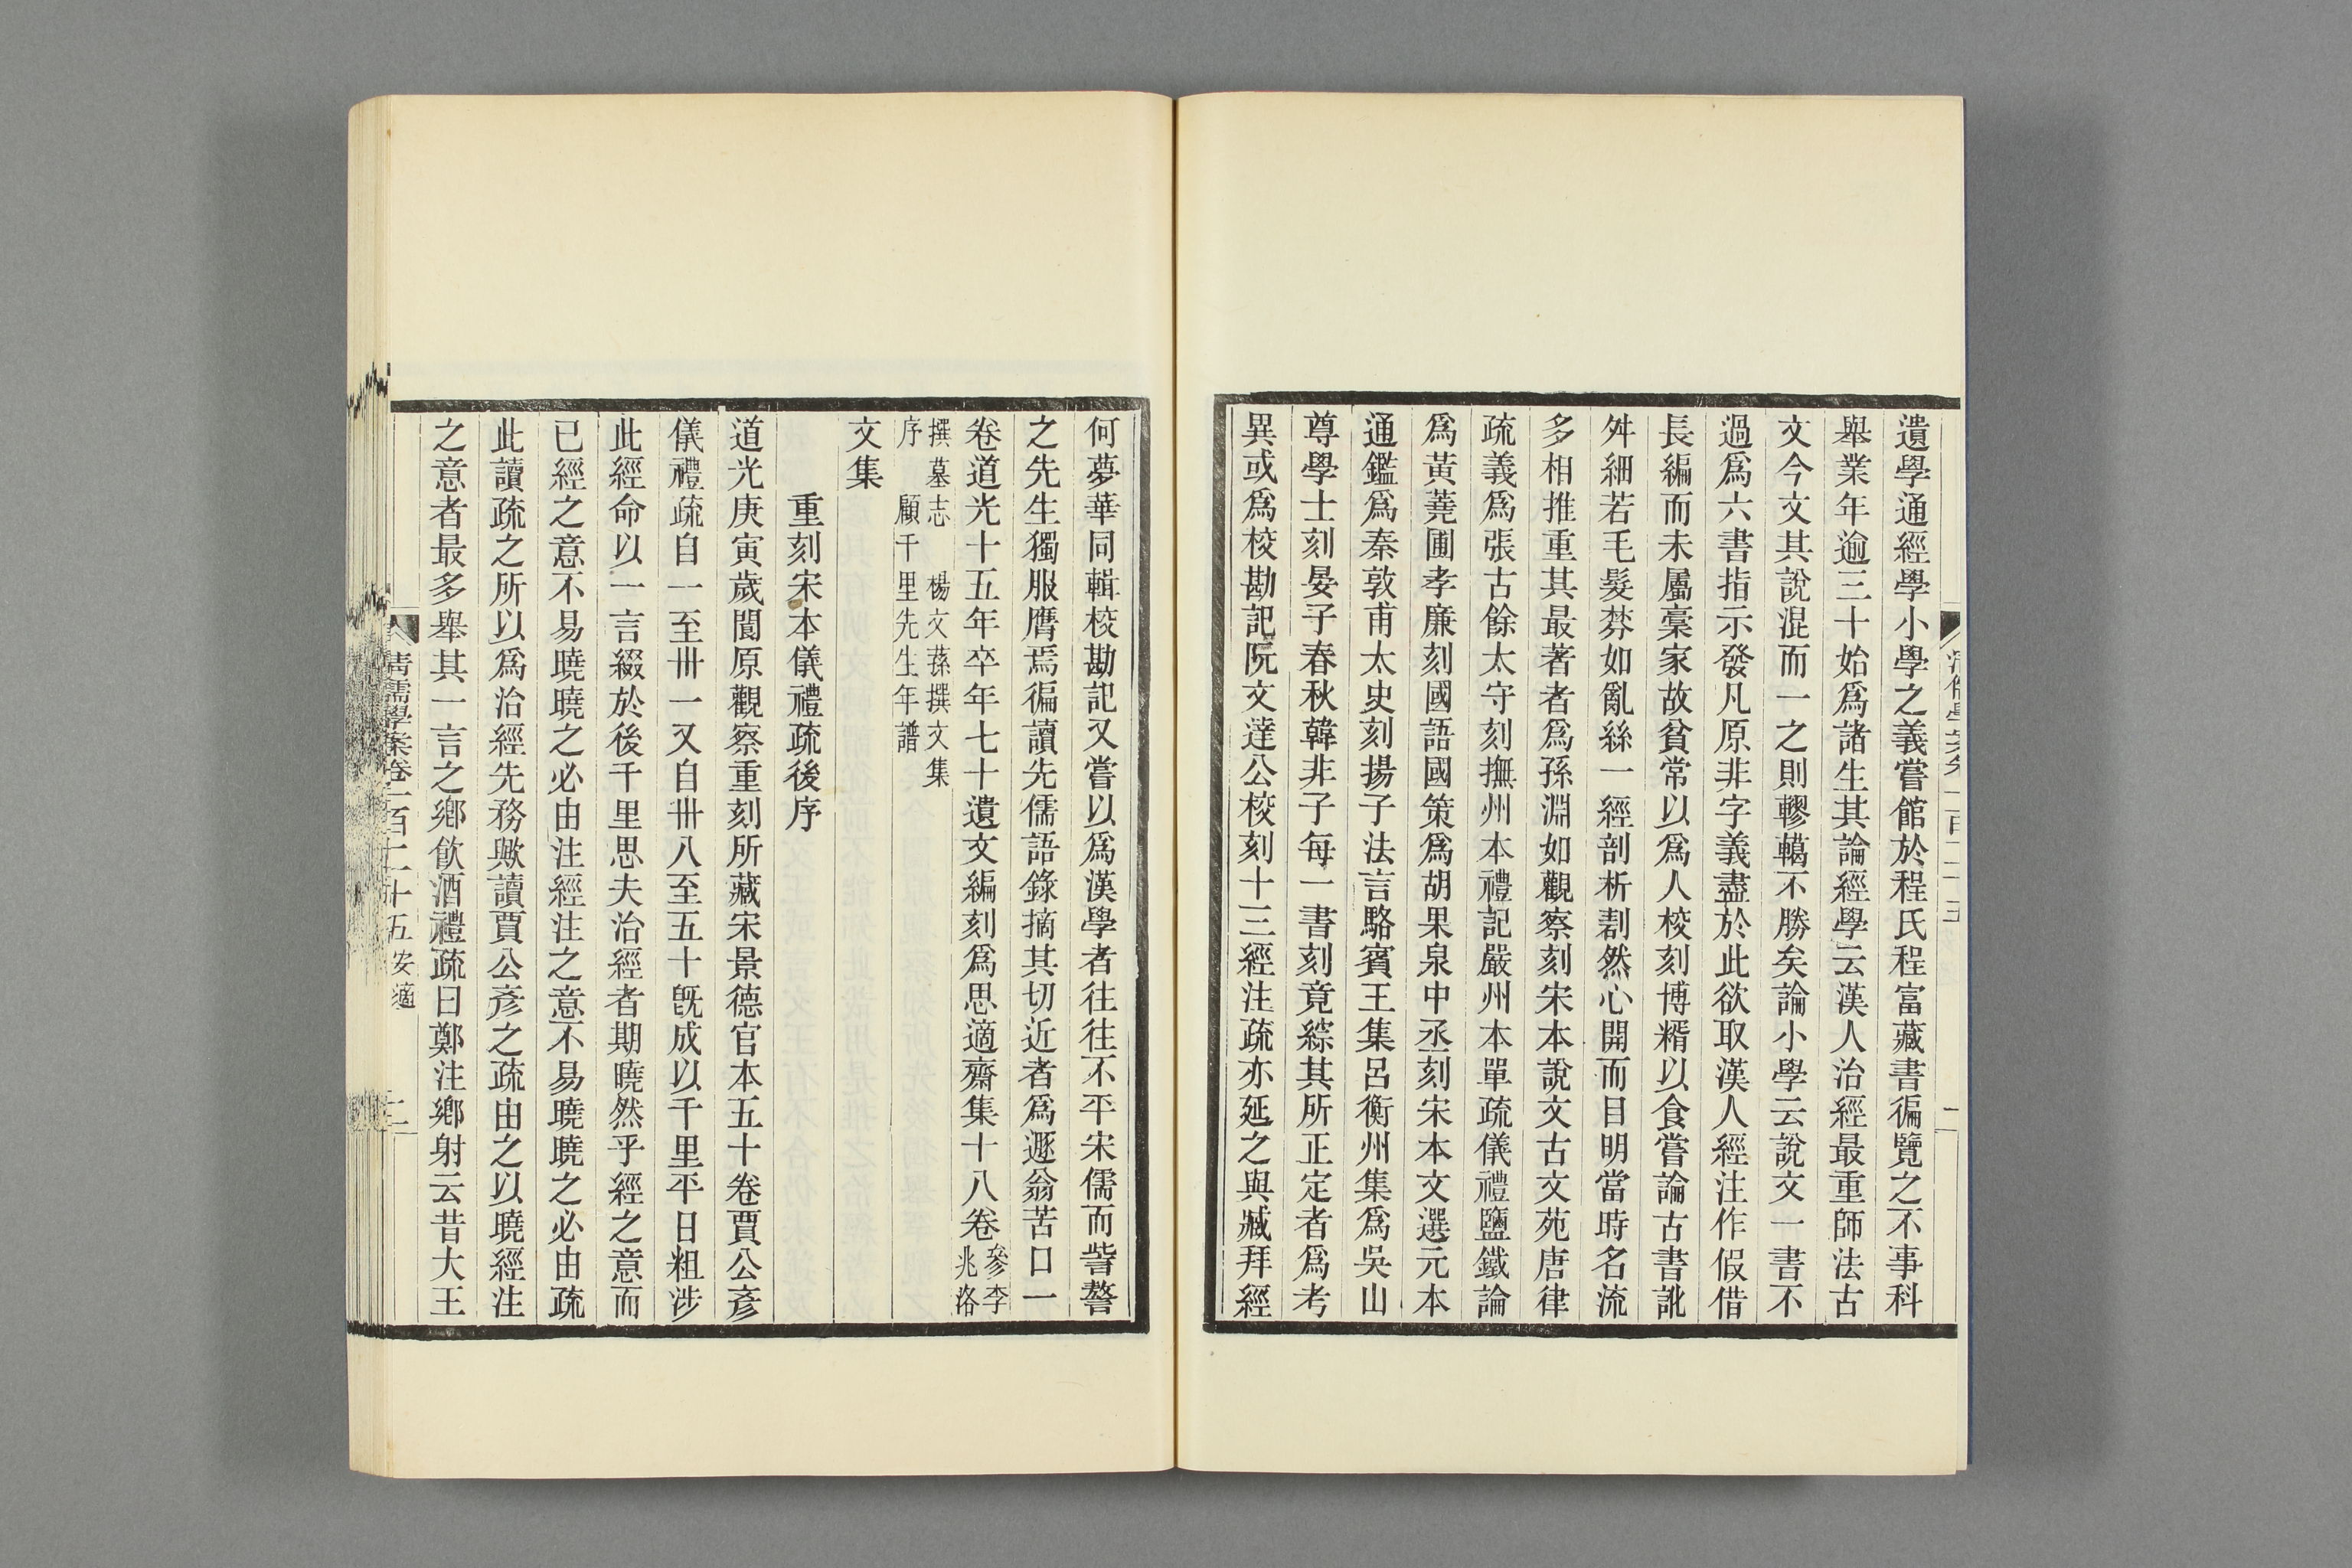 遺學通經學小學之義嘗館於程氏程富藏書徧覽之不事科
舉業年逾三十始爲諸生其論經學云漢人治經最重師法古
文今文其說混而一之則轇轕不勝矣論小學云說文一書不
過爲六書指示發凡原非字義盡於此欲取漢人經注作假借
長編而未屬稾家故貧常以爲人校刻博糈以食嘗論古書訛
舛細若毛髮棼如亂絲一經剖析劃然心開而目明當時名流
多相推重其最著者爲孫淵如觀察刻宋本說文古文苑唐律
疏義爲張古餘太守刻撫州本禮記嚴州本單疏儀禮鹽鐵論
爲黃蕘圃孝廉刻國語國策爲胡果泉中丞刻宋本文選元本
通鑑爲秦敦甫太史刻揚子法言駱賓王集呂衡州集爲吳山
尊學士刻晏子春秋韓非子每一書刻竟綜其所正定者爲考
異或爲校勘記阮文達公校刻十三經注疏亦延之與臧拜經
何夢華同輯校勘記又嘗以爲漢學者往往不平宋儒而訾謷
之先生獨服膺焉徧讀先儒語錄摘其切近者爲遯翁苦口一
卷道光十五年卒年七十遺文編刻爲思適齋集十八卷參李兆洛
撰墓志 楊文蓀撰文集
序 顧千里先生年譜
文集
重刻宋本儀禮疏後序
道光庚寅歲閬原觀察重刻所藏宋景德官本五十卷賈公彥
儀禮疏自一至卅一又自卅八至五十旣成以千里平日粗涉
此經命以一言綴於後千里思夫治經者期曉然乎經之意而
已經之意不易曉曉之必由注經注之意不易曉曉之必由疏
此讀疏之所以爲治經先務歟讀賈公彥之疏由之以曉經注
之意者最多舉其一言之鄉飮酒禮疏曰鄭注鄉射云昔大王
清儒學案卷一百二十五安適 二